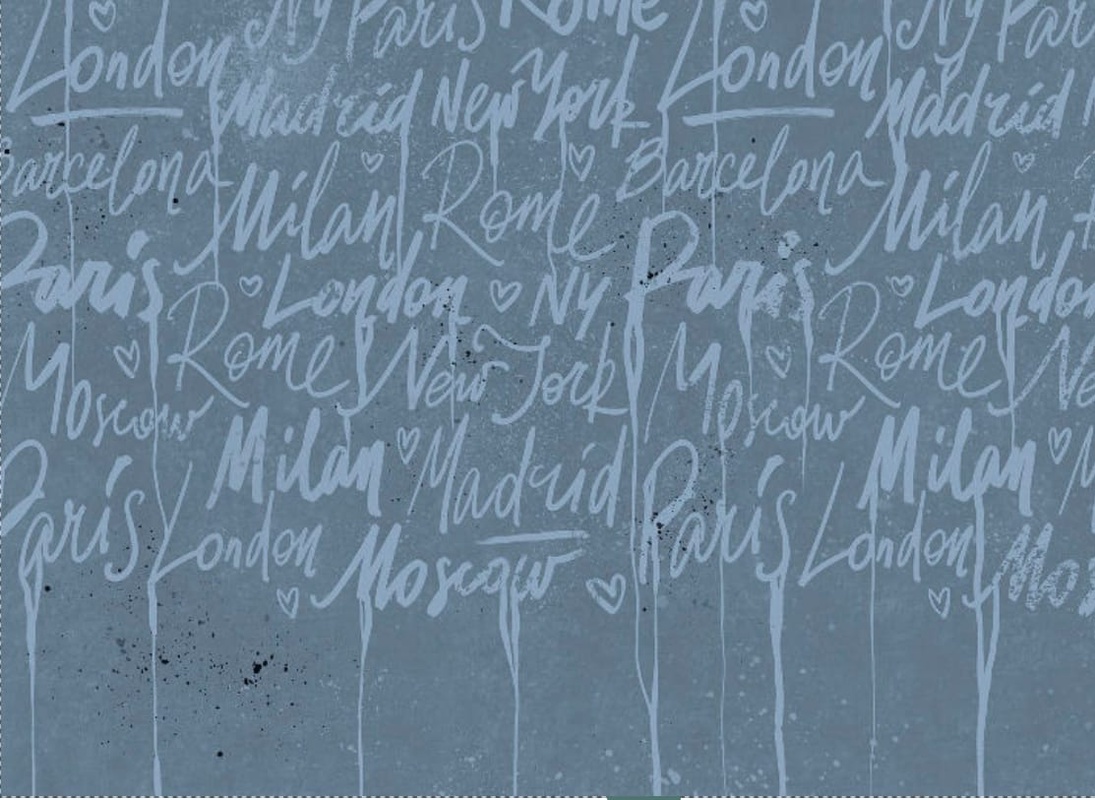 Ny Paris Rome Ny Par
London London
Madrid New York Madrid
Barcelona Milan Rome Barcelona Milan
Paris London Ny Paris London
Moscow Rome New York Moscow Rome Ne
Milan Madrid Milan M
Paris London Paris London
Moscow Mos